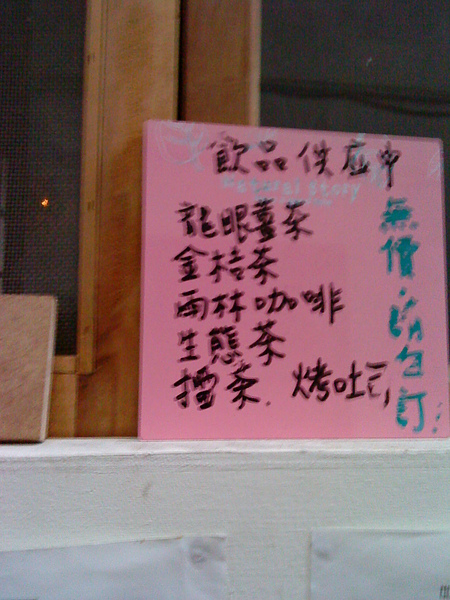 飲品供應中
story
龍眼薑茶
金桔茶
雨林咖啡
生態茶
擂茶. 烤吐司
無價,請自訂!